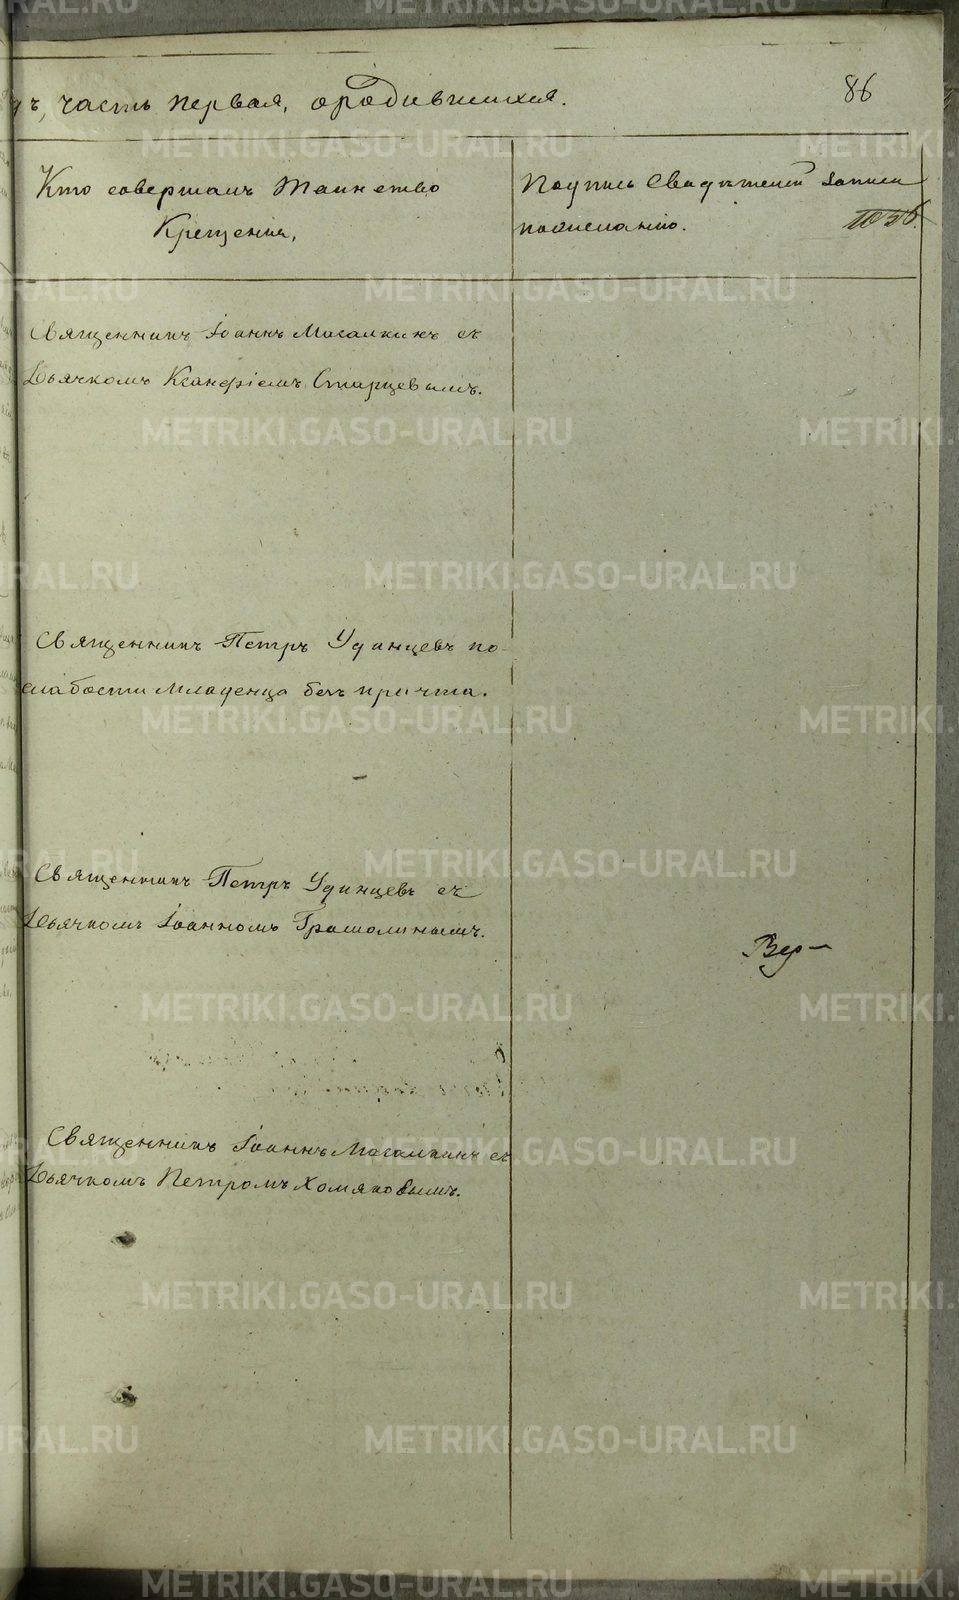 ъ, часть первая, о родившихся.
86
Кто совершалъ Таинство
Крещенія,
Подпись Свидѣтелей записи
по желанію.
Священникъ Іоаннъ Масалкинъ съ
Дьячкомъ Ксанфіемъ Старцевымъ.
Священникъ Петръ Удинцевъ по
слабости младенца безъ причта.
Священникъ Петръ Удинцевъ съ
Дьячкомъ Іоанномъ Грамолинымъ.
Вер-
Священникъ Іоаннъ Масалкинъ съ
Дьячкомъ Петромъ Хомяковымъ.
METRIKI.GASO-URAL.RU